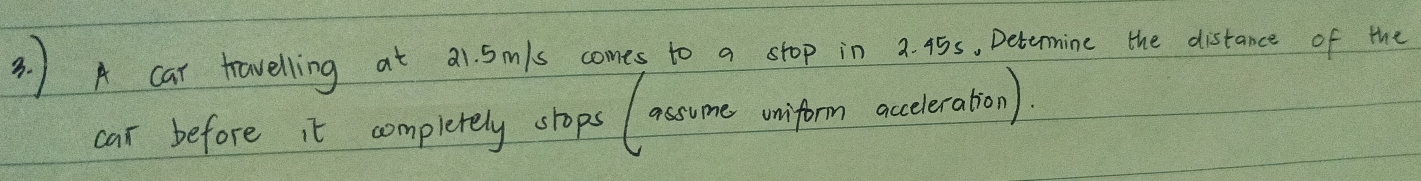 3.) A car travelling at 21.5m/s comes to a stop in 2.45s. Determine the distance of the
car before it completely stops (assume uniform acceleration).